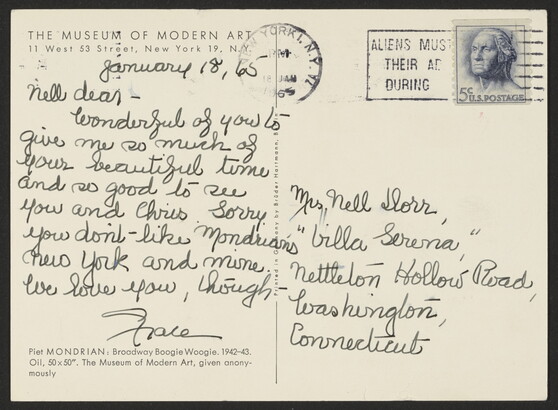 THE MUSEUM OF MODERN ART
11 West 53 Street, New York 19, N.Y.
January 18, 65
Nell dear –
Wonderful of you to
give me so much of
your beautiful time
and so good to see
you and Chris. Sorry
you don't like Mondrian's
New York and mine.
We love you, though –
Grace
Piet MONDRIAN: Broadway Boogie Woogie. 1942–43.
Oil, 50 x 50". The Museum of Modern Art, given anony-
mously
Printed in Germany by Brüder Hartmann,
NEW YORK, N.Y.
PM
18 JAN
1965
ALIENS MUST
THEIR AD
DURING
5c U.S. POSTAGE
Mrs. Nell Dorr,
"Villa Serena,"
Nettleton Hollow Road,
Washington,
Connecticut